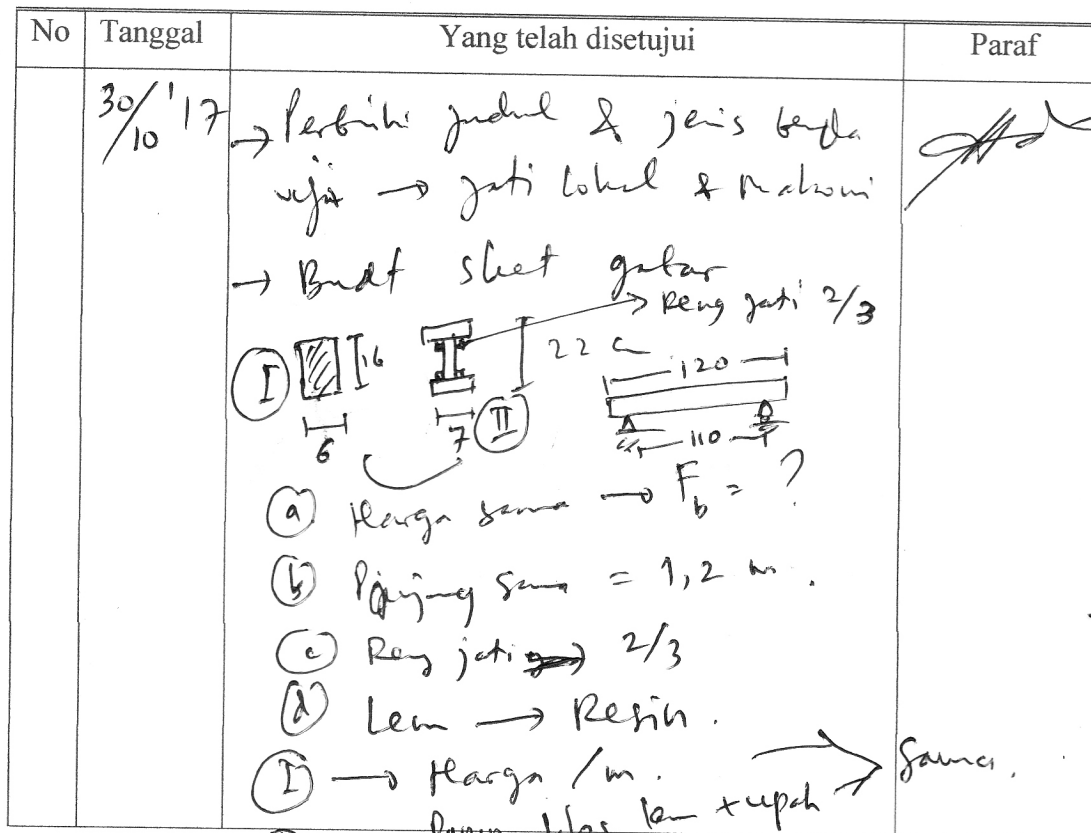 No Tanggal Yang telah disetujui Paraf
30/10 '17 → Perbaiki judul & jenis benda
uji → Jati lokal & Mahoni
→ Buat sket gambar
→ Reng jati 2/3
I 16 22 120
6 7 II 110
(a) Harga sama → Fb = ?
(b) Panjang sama = 1,2 m.
(c) Reng jati → 2/3
(d) Lem → Resin.
I → Harga /m. Sama.
lem + upah